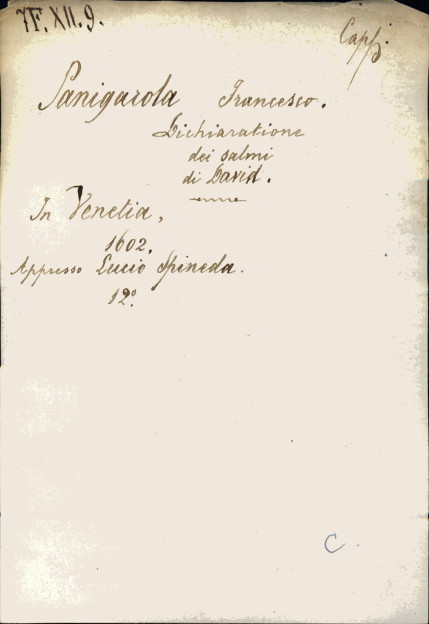 7F.XII.9.
Panigarola Francesco.
Dichiaratione
dei salmi
di David.
In Venetia,
1602.
Appresso Lucio Spineda.
12º
C